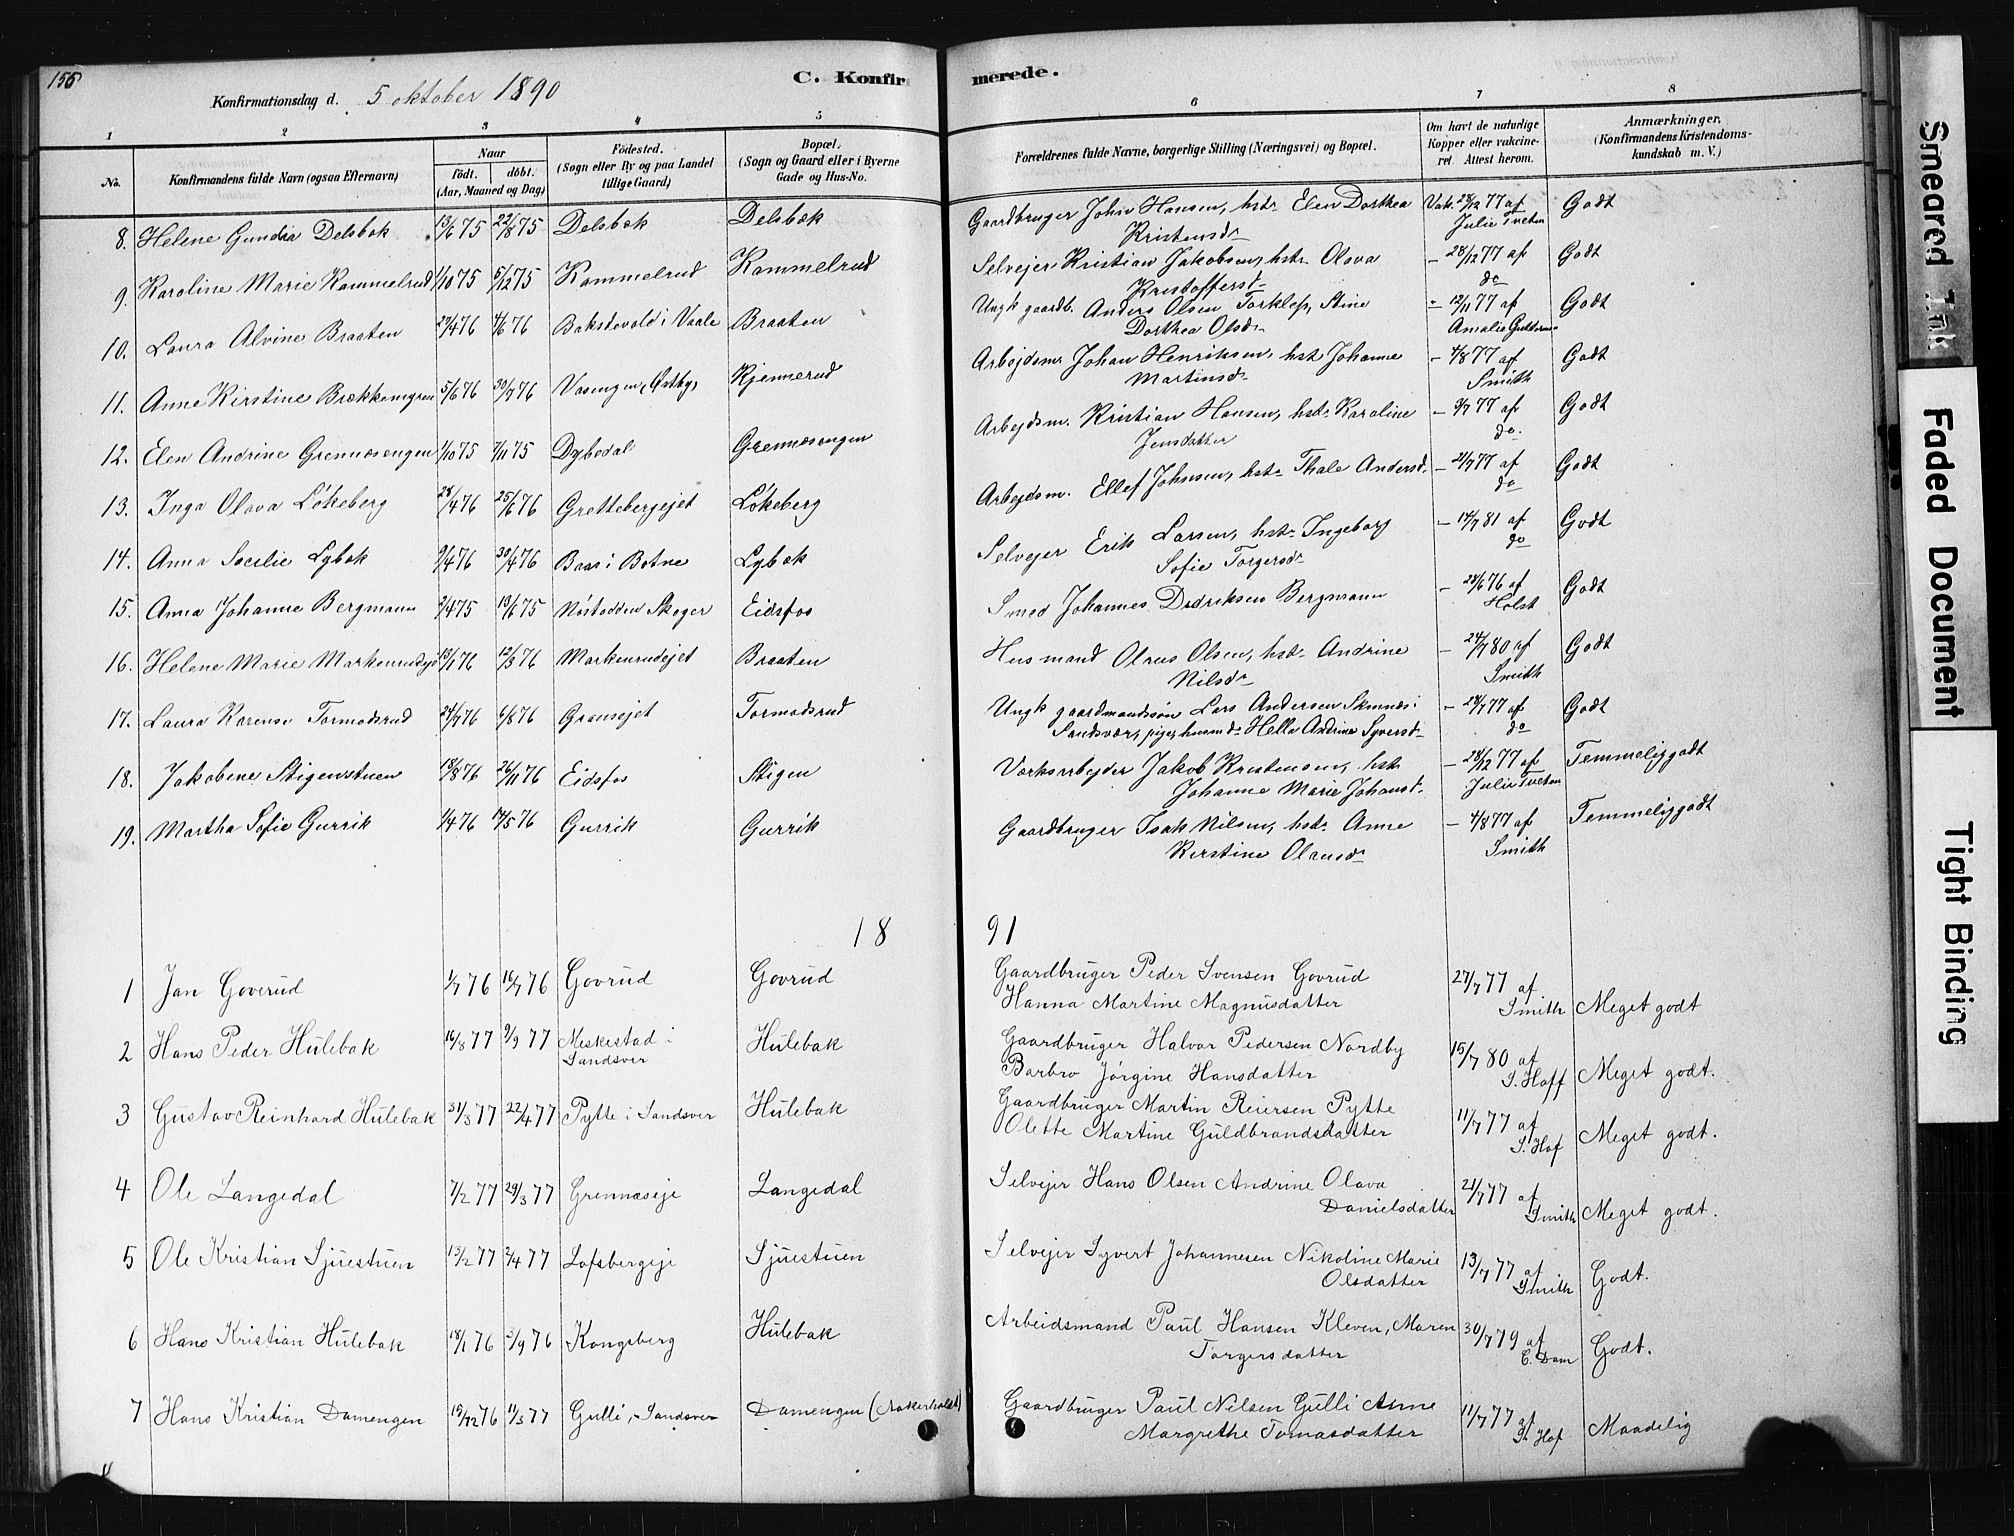 155
C. Konfirmerede.
Konfirmationsdag d. 5 oktober 1890
1 2 3 4 5 6 7 8
No. Konfirmandens fulde Navn (ogsaa Efternavn) Naar födt. döbt. (Aar, Maaned og Dag) Födested. (Sogn eller By og paa Landet tillige Gaard) Bopæl. (Sogn og Gaard eller i Byerne Gade og Hus-No. Forældrenes fulde Navne, borgerlige Stilling (Næringsvei) og Bopæl. Om havt de naturlige Kopper eller vakcineret. Attest herom. Anmærkninger. (Konfirmandens Kristendomskundskab m. V.)
8. Helene Gundia Delsbak 13/6 75 22/8 75 Delsbak Delsbæk Gaardbruger Johan Hansen, hst. Elen Dorthea Vak. 28/12 77 af Godt
Kristensdr Julie Tveten
9. Karoline Marie Kammelrud 1/10 75 5/12 75 Kammelrud Kammelrud Selvejer Kristian Jakobsen, hst. Olava – 28/12 77 af Godt
Kristofferst. do
10. Laura Alvine Braaten 29/4 76 4/6 76 Bakstevold i Vaale Braaten Ungk gaardb. Anders Olsen Torklep, Stine – 12/11 77 af Godt
Dorthea Olsdr Amalie
11. Anne Kirstine Brækkemyren 5/6 76 30/7 76 Vasengen, Østby, Kjennerud Arbejdsm. Johan Henriksen, hst. Johanne – 4/8 77 af Godt
Martinsdr Smith
12. Elen Andrine Grennæsengen 1/10 75 7/11 75 Dybedal Grennæsengen Arbejdsm. Kristian Hansen, hst. Karoline – 9/7 77 af Godt
Jensdatter do.
13. Inga Olava Løkeberg 28/4 76 25/6 76 Grettebergejet Løkeberg Arbejdsm. Ellef Johnsen, hst. Thale Andersd. – 21/7 77 af Godt
do
14. Anna Secilie Lybæk 9/4 76 30/4 76 Baas i Botne Lybæk Selvejer Erik Larsen, hst. Ingeborg – 14/7 81 af Godt
Sofie Torgersdr do
15. Anna Johanne Bergmann 2/4 75 13/6 75 Nøstodden Skoger Eidsfos Smed Johannes Didriksen Bergmann – 28/6 76 af Godt
Holst
16. Helene Marie Markenrudejet 13/1 76 12/3 76 Markenrudejet Braaten Husmand Olaus Olsen, hst. Andrine – 24/7 80 af Godt
Nilsdr Smith
17. Laura Karense Tormodsrud 24/7 76 6/8 76 Granejet Tormodsrud Ungk gaardmandssøn Lars Andersen Skinnes i – 24/7 77 af Godt
Sandsvær, pige, husmd. Hella Andrine Syversd. do
18. Jakobine Stigenstuen 18/8 76 26/11 76 Eidsfos Stigen Værksarbejder Jakob Kristensen, hst. – 28/12 77 af Temmelig godt
Johanne Marie Johansd. Julie Tveten
19. Martha Sofie Gurrik 1/4 76 14/5 76 Gurrik Gurrik Gaardbruger Isak Nilsen, hst. Anne – 4/8 77 af Temmelig godt
Kirstine Olausdr Smith
18 91
1 Jan Goverud 1/7 76 16/7 76 Govrud Govrud Gaardbruger Peder Svensen Govrud 27/7 77 af
Hanna Martine Magnusdatter Smith Meget godt
2 Hans Peder Hulebak 16/8 77 9/9 77 Meskestad i Sandsver Hulebak Gaardbruger Halvor Pedersen Nordby 15/7 80 af
Barbro Jørgine Hansdatter S. Hoff Meget godt.
3 Gustav Reinhard Hulebak 31/3 77 22/4 77 Pytte i Sandsver Hulebak Gaardbruger Martin Reiersen Pytte 11/7 77 af
Olette Martine Guldbrandsdatter S. Hof Meget godt.
4 Ole Langedal 7/2 77 29/3 77 Grennaseje Langedal Selvejer Hans Olsen Andrine Olava 21/7 77 af
Danielsdatter Smith Meget godt.
5 Ole Kristian Sjuestuen 13/2 77 2/4 77 Lofsbergeje Sjuestuen Selvejer Syvert Johannesen Nikoline Marie 13/7 77 af
Olsdatter Smith Godt.
6 Hans Kristian Hulebak 18/1 76 3/9 76 Kongsberg Hulebak Arbeidsmand Paul Hansen Kleven, Maren 30/7 79 af
Torgersdatter C. Dam Godt.
7 Hans Kristian Damengen 15/12 76 11/3 77 Gulli, Sandsver Damengen (Aakerholdt) Gaardbruger Paul Nilsen Gulli Anne 11/7 77 af
Margrethe Tomasdatter S. Hof Maadelig
Smeared Ink
Faded Document
Tight Binding